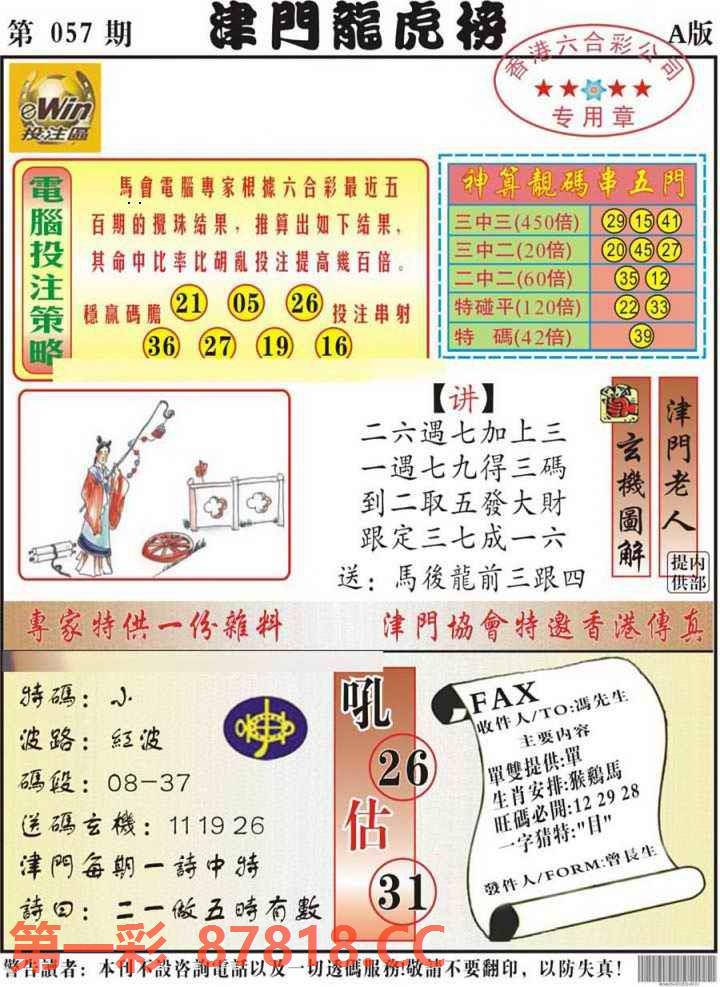 第 057 期
津門龍虎榜
A版
香港六合彩公司
专用章
eWin
投注區
電腦投注策略
馬會電腦專家根據六合彩最近五
百期的攪珠结果，推算出如下结果，
其命中比率比胡亂投注提高幾百倍。
穩贏碼膽 21 05 26 投注串射
36 27 19 16
神算靚碼串五門
三中三(450倍) 29 15 41
三中二(20倍) 20 45 27
二中二(60倍) 35 12
特碰平(120倍) 22 33
特 碼(42倍) 39
【讲】
二六遇七加上三
一遇七九得三碼
到二取五發大財
跟定三七成一六
送：馬後龍前三跟四
玄機圖解
津門老人
内部提供
專家特供一份雜料
津門協會特邀香港傳真
特碼：小
波路：紅波
碼段：08-37
送碼玄機：11 19 26
津門每期一詩中特
詩曰：二一做五時有數
吼
26
估
31
FAX
收件人/TO:馮先生
主要内容
單雙提供:單
生肖安排:猴鷄馬
旺碼必開:12 29 28
一字猜特:"目"
發件人/FORM:曾長生
第一彩 87818.CC
警告讀者：本刊不設咨詢電話以及一切透碼服務!敬請不要翻印，以防失真!